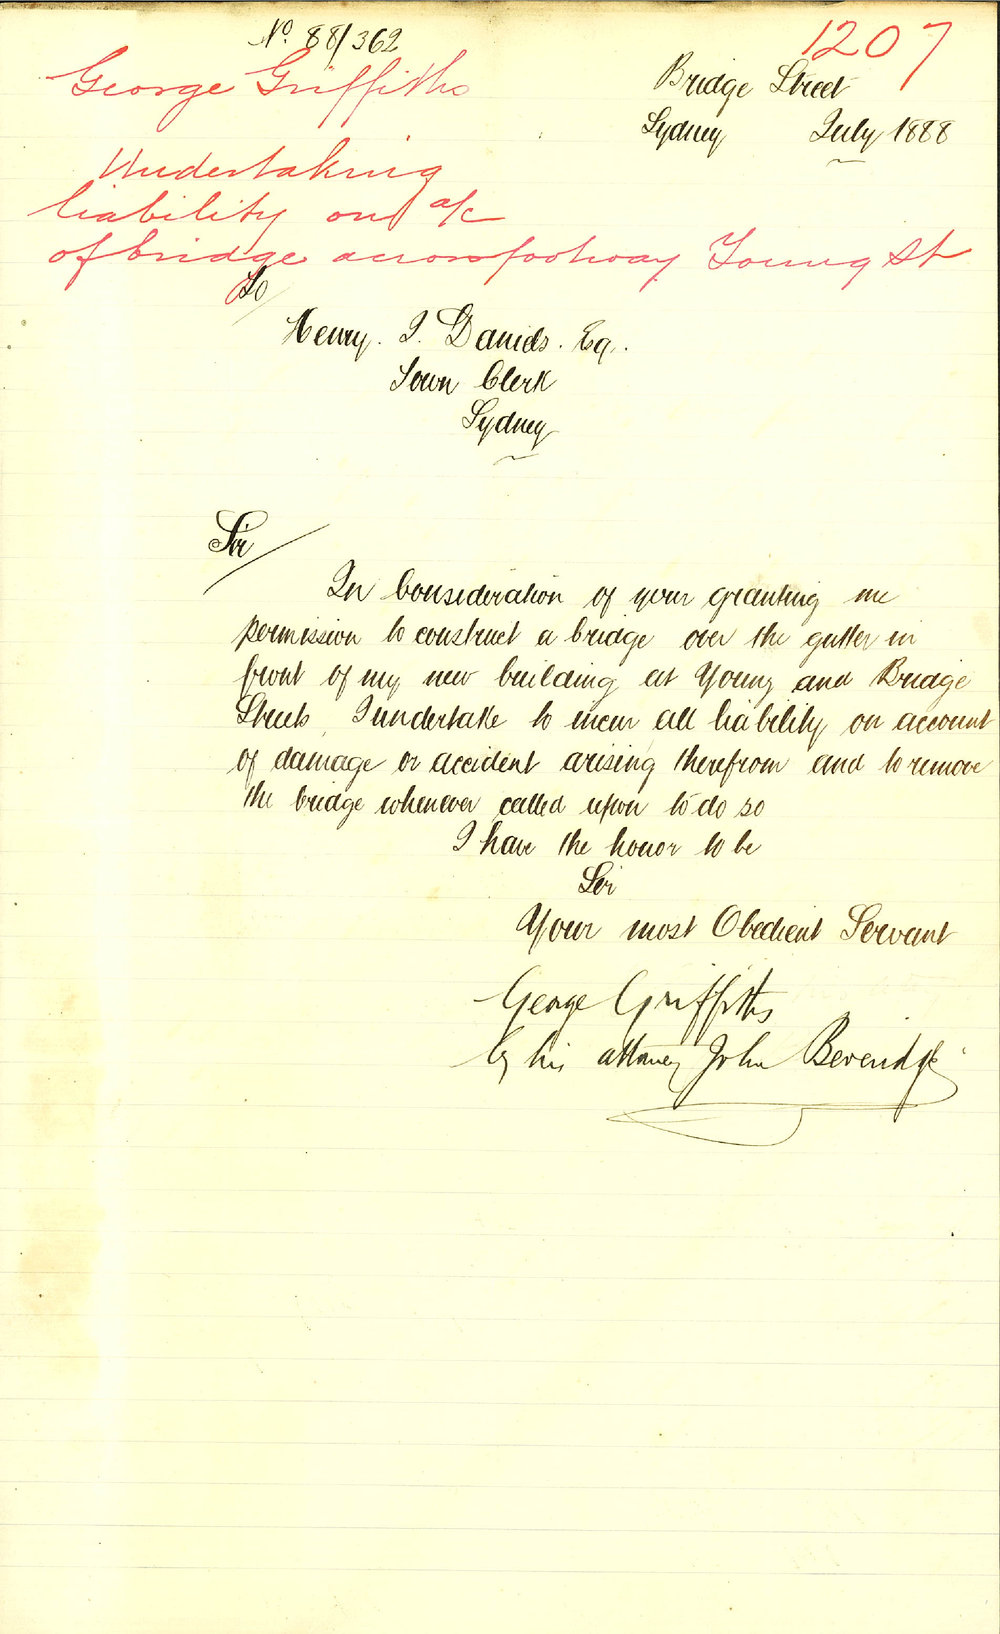 No. 88/362
1207
George Griffiths
Bridge Street
Sydney July 1888
Undertaking
liability on a/c
of bridge across footway Young St
To
Henry. J. Daniels. Esq.
Town Clerk
Sydney
Sir
In Consideration of your granting me
permission to construct a bridge over the gutter in
front of my new building at Young and Bridge
Streets, I undertake to incur all liability on account
of damage or accident arising therefrom and to remove
the bridge whenever called upon to do so
I have the honor to be
Sir
Your most Obedient Servant
George Griffiths
by his attorney John Beveridge